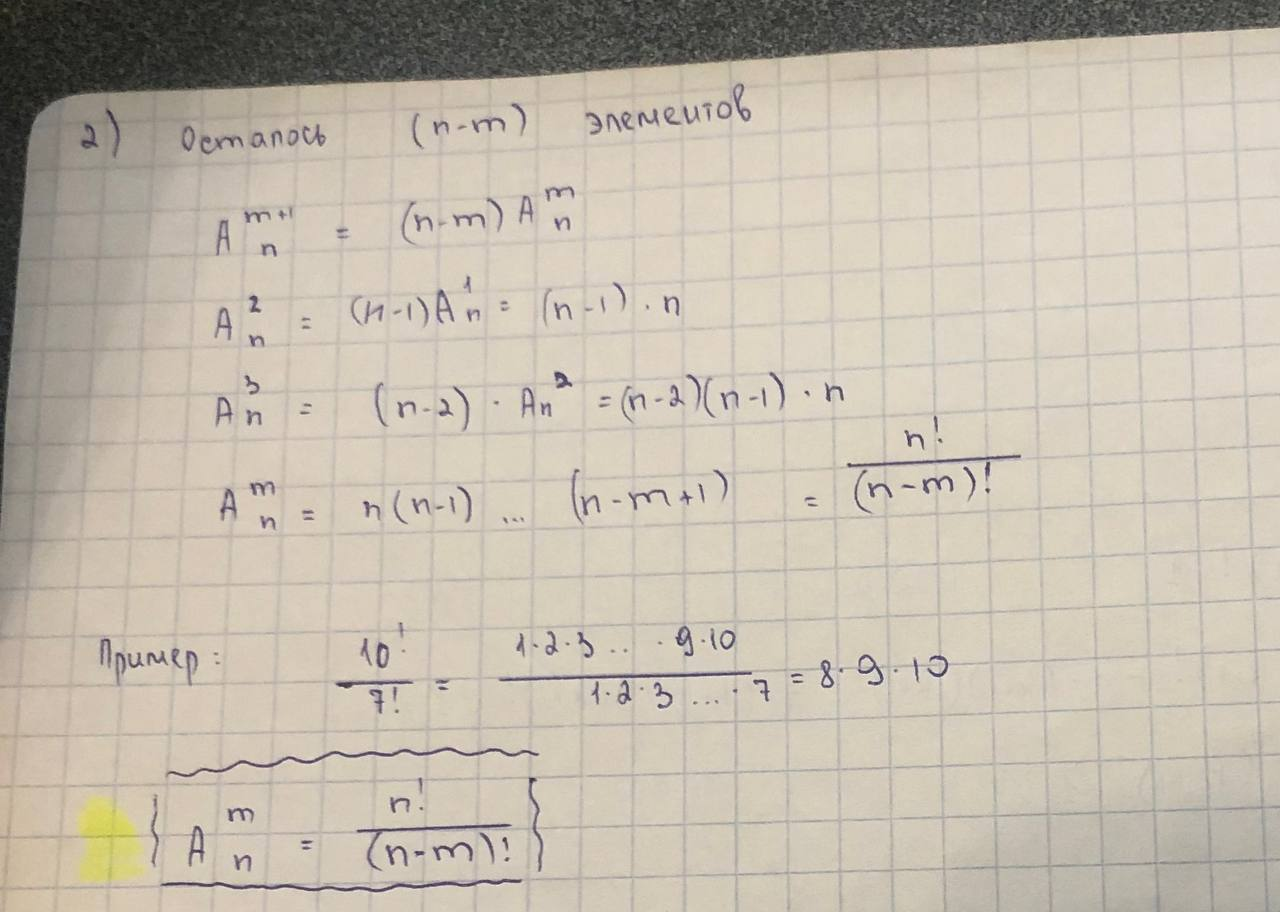 2) Осталось (n-m) элементов
A_n^{m+1} = (n-m) A_n^m
A_n^2 = (n-1) A_n^1 = (n-1) · n
A_n^3 = (n-2) · A_n^2 = (n-2)(n-1) · n
A_n^m = n(n-1) ... (n-m+1) = \frac{n!}{(n-m)!}
Пример: \frac{10!}{7!} = \frac{1·2·3 .. · 9·10}{1·2·3 ... · 7} = 8·9·10
{ A_n^m = \frac{n!}{(n-m)!} }